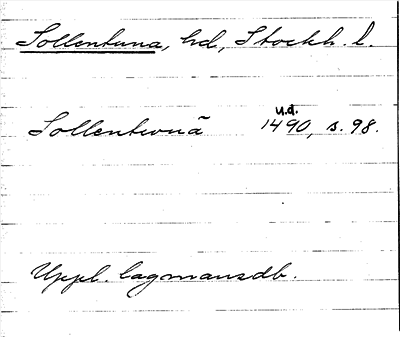 Sollentuna, hd, Stockh. l.
u.d.
Sollentwnã 1490, s. 98.
Uppl. lagmansdb.